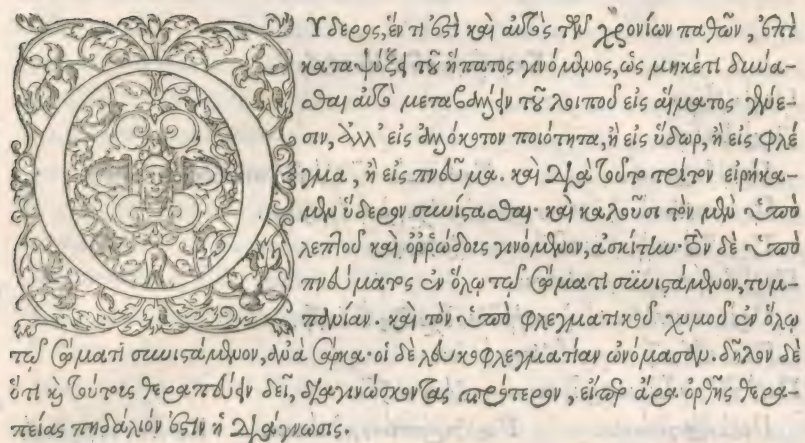 ΟΥδερος, ἕν τι ἐστὶ καὶ αὐτὸς τῶν χρονίων παθῶν, ἐπὶ
καταψύξει τοῦ ἥπατος γινόμενος, ὡς μηκέτι δύνα-
σθαι αὐτὸ μεταβάλλειν τοῦ λοιποῦ εἰς αἵματος γένε-
σιν, ἀλλ’ εἰς ἀλλόκοτον ποιότητα, ἢ εἰς ὕδωρ, ἢ εἰς φλέ
γμα, ἢ εἰς πνεῦμα. καὶ διὰ τοῦτο τρίτον εἰρήκα-
μεν ὕδερον συνίστασθαι· καὶ καλοῦσι τὸν μὲν ὑπὸ
λεπτοῦ καὶ ὀῤῥώδους γινόμενον, ἀσκίτην· ὃν δὲ ὑπὸ
πνεύματος ἐν ὅλῳ τῷ σώματι συνιστάμενον, τυμ-
πανίαν. καὶ τὸν ὑπὸ φλεγματικοῦ χυμοῦ ἐν ὅλῳ
τῷ σώματι συνιστάμενον, ἀνὰ σάρκα· οἱ δὲ λευκοφλεγματίαν ὠνόμασαν. δῆλον δὲ
ὅτι καὶ τούτους θεραπεύειν δεῖ, διαγινώσκοντας πρότερον, εἴπερ ἄρα ὀρθῆς θερα-
πείας πηδάλιόν ἐστιν ἡ διάγνωσις.